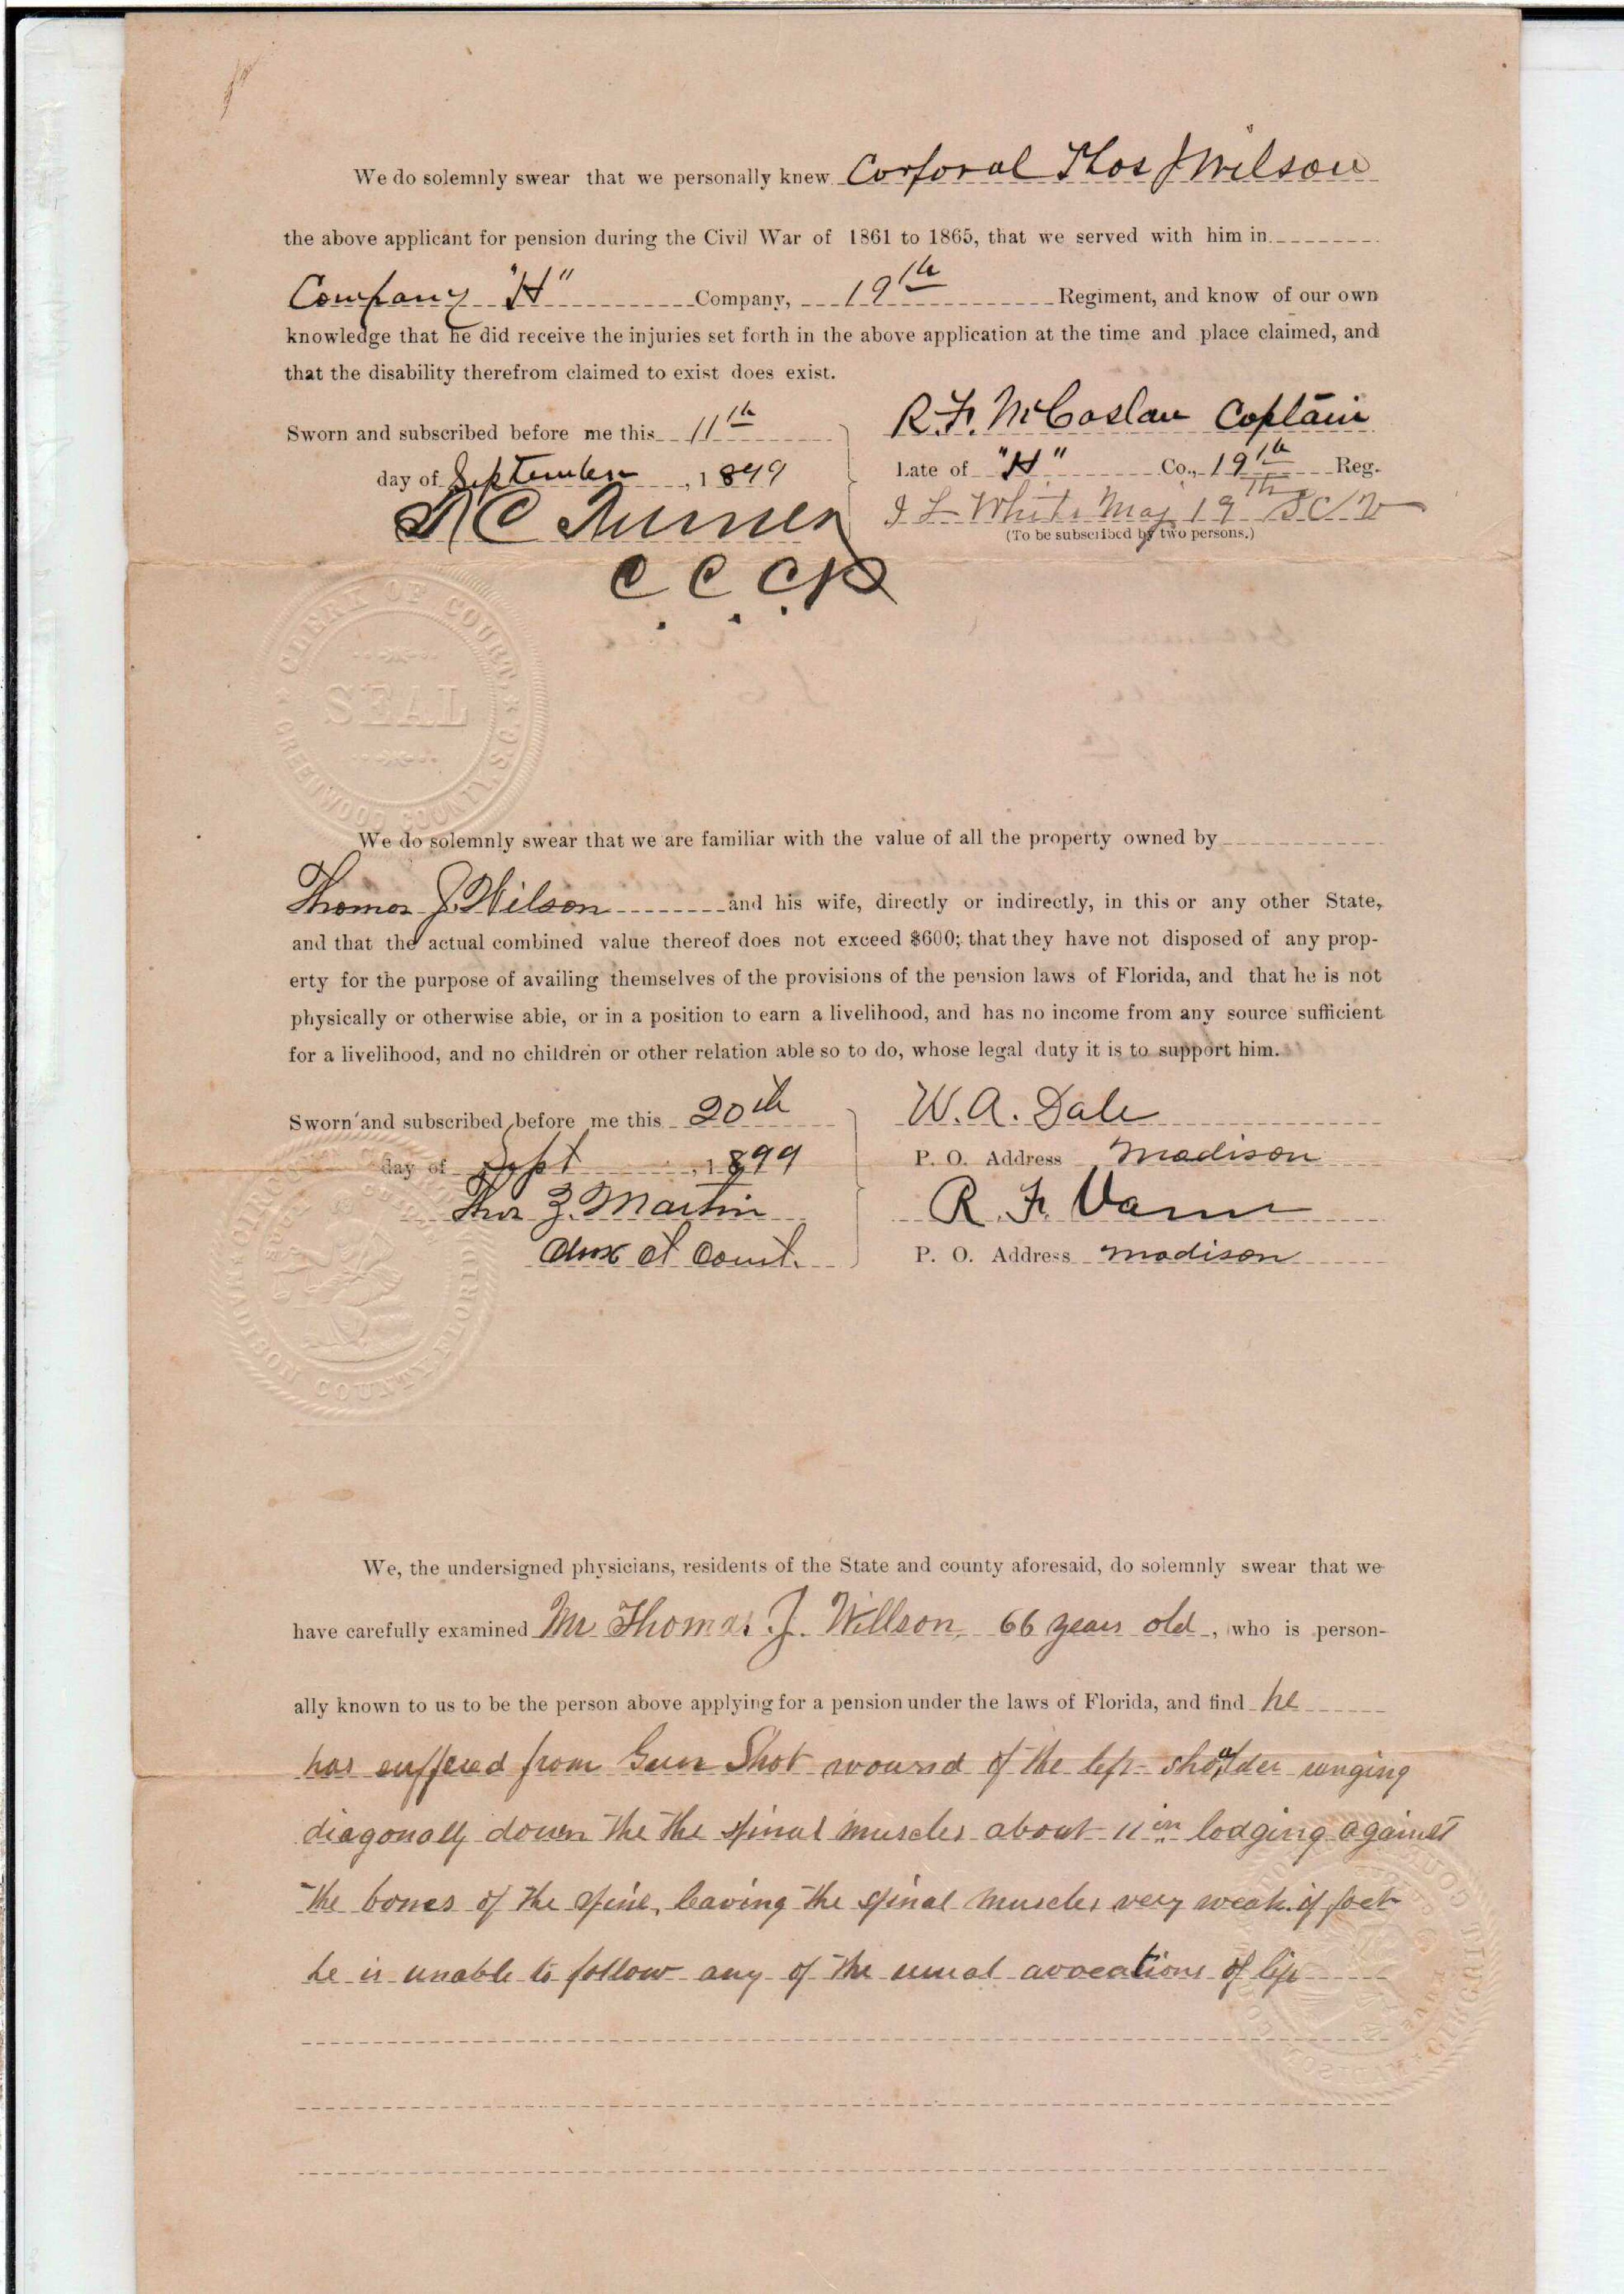 We do solemnly swear that we personally knew Corporal Thos J Wilson
the above applicant for pension during the Civil War of 1861 to 1865, that we served with him in
Company "H" Company, 19th Regiment, and know of our own
knowledge that he did receive the injuries set forth in the above application at the time and place claimed, and
that the disability therefrom claimed to exist does exist.
Sworn and subscribed before me this 11th
day of September, 1899
R. F. McCaslan Captain
Late of "H" Co., 19th Reg.
White Maj 19th S C V
(To be subscribed by two persons.)
C C C P
CLERK OF COURT,
SEAL
GREENWOOD COUNTY, S.C.
We do solemnly swear that we are familiar with the value of all the property owned by
Thomas J. Wilson and his wife, directly or indirectly, in this or any other State,
and that the actual combined value thereof does not exceed $600; that they have not disposed of any prop-
erty for the purpose of availing themselves of the provisions of the pension laws of Florida, and that he is not
physically or otherwise able, or in a position to earn a livelihood, and has no income from any source sufficient
for a livelihood, and no children or other relation able so to do, whose legal duty it is to support him.
Sworn and subscribed before me this 20th
day of Sept, 1899
Martin
Court.
W. A. Dale
P. O. Address Madison
R. F. Vann
P. O. Address Madison
MADISON COUNTY, FLORIDA
We, the undersigned physicians, residents of the State and county aforesaid, do solemnly swear that we
have carefully examined Mr Thomas J. Willson, 66 years old, who is person-
ally known to us to be the person above applying for a pension under the laws of Florida, and find he
has suffered from Gun Shot wound of the left shoulder ranging
diagonally down the the spinal muscles about 11 in lodging against
the bones of the spine, leaving the spinal muscles very weak. if fact
he is unable to follow any of the usual avocations of life